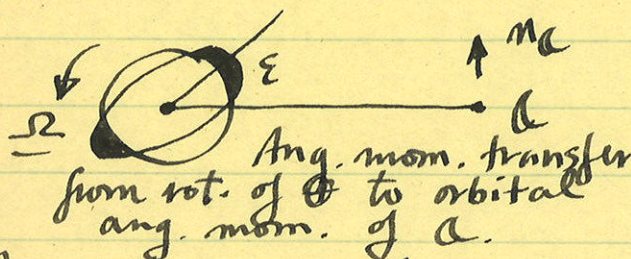 ε n☾
Ω ☾
Ang. mom. transfer
from rot. of ⊕ to orbital
ang. mom. of ☾.